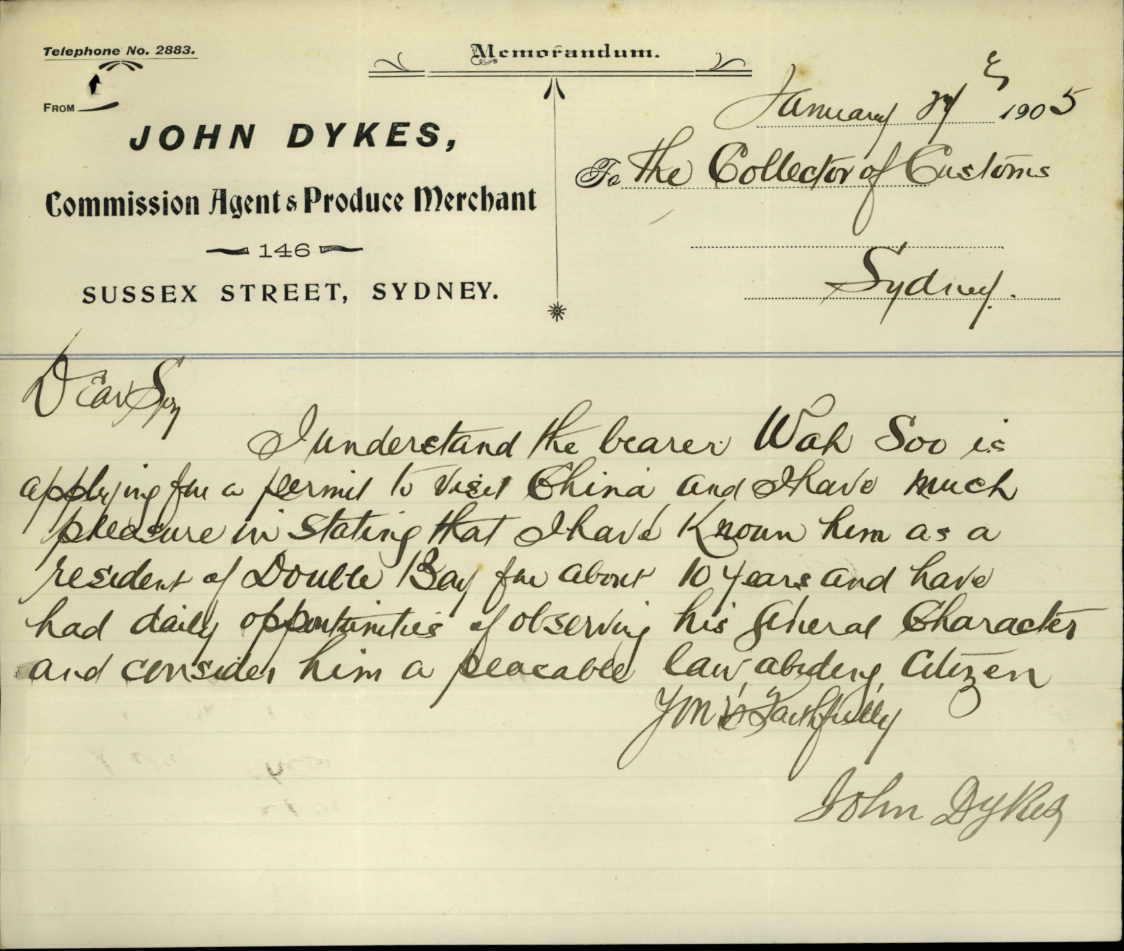 Telephone No. 2883.
Memorandum.
FROM
January 1905
JOHN DYKES,
To The Collector of Customs
Commission Agent & Produce Merchant
146
Sydney.
SUSSEX STREET, SYDNEY.
Dear Sir
I understand the bearer Wah Soo is
applying for a permit to visit China and I have much
pleasure in stating that I have Known him as a
resident of Double Bay for about 10 years and have
had daily opportunities of observing his general Character
and consider him a peacable law abiding Citizen
Yours Faithfully
John Dykes